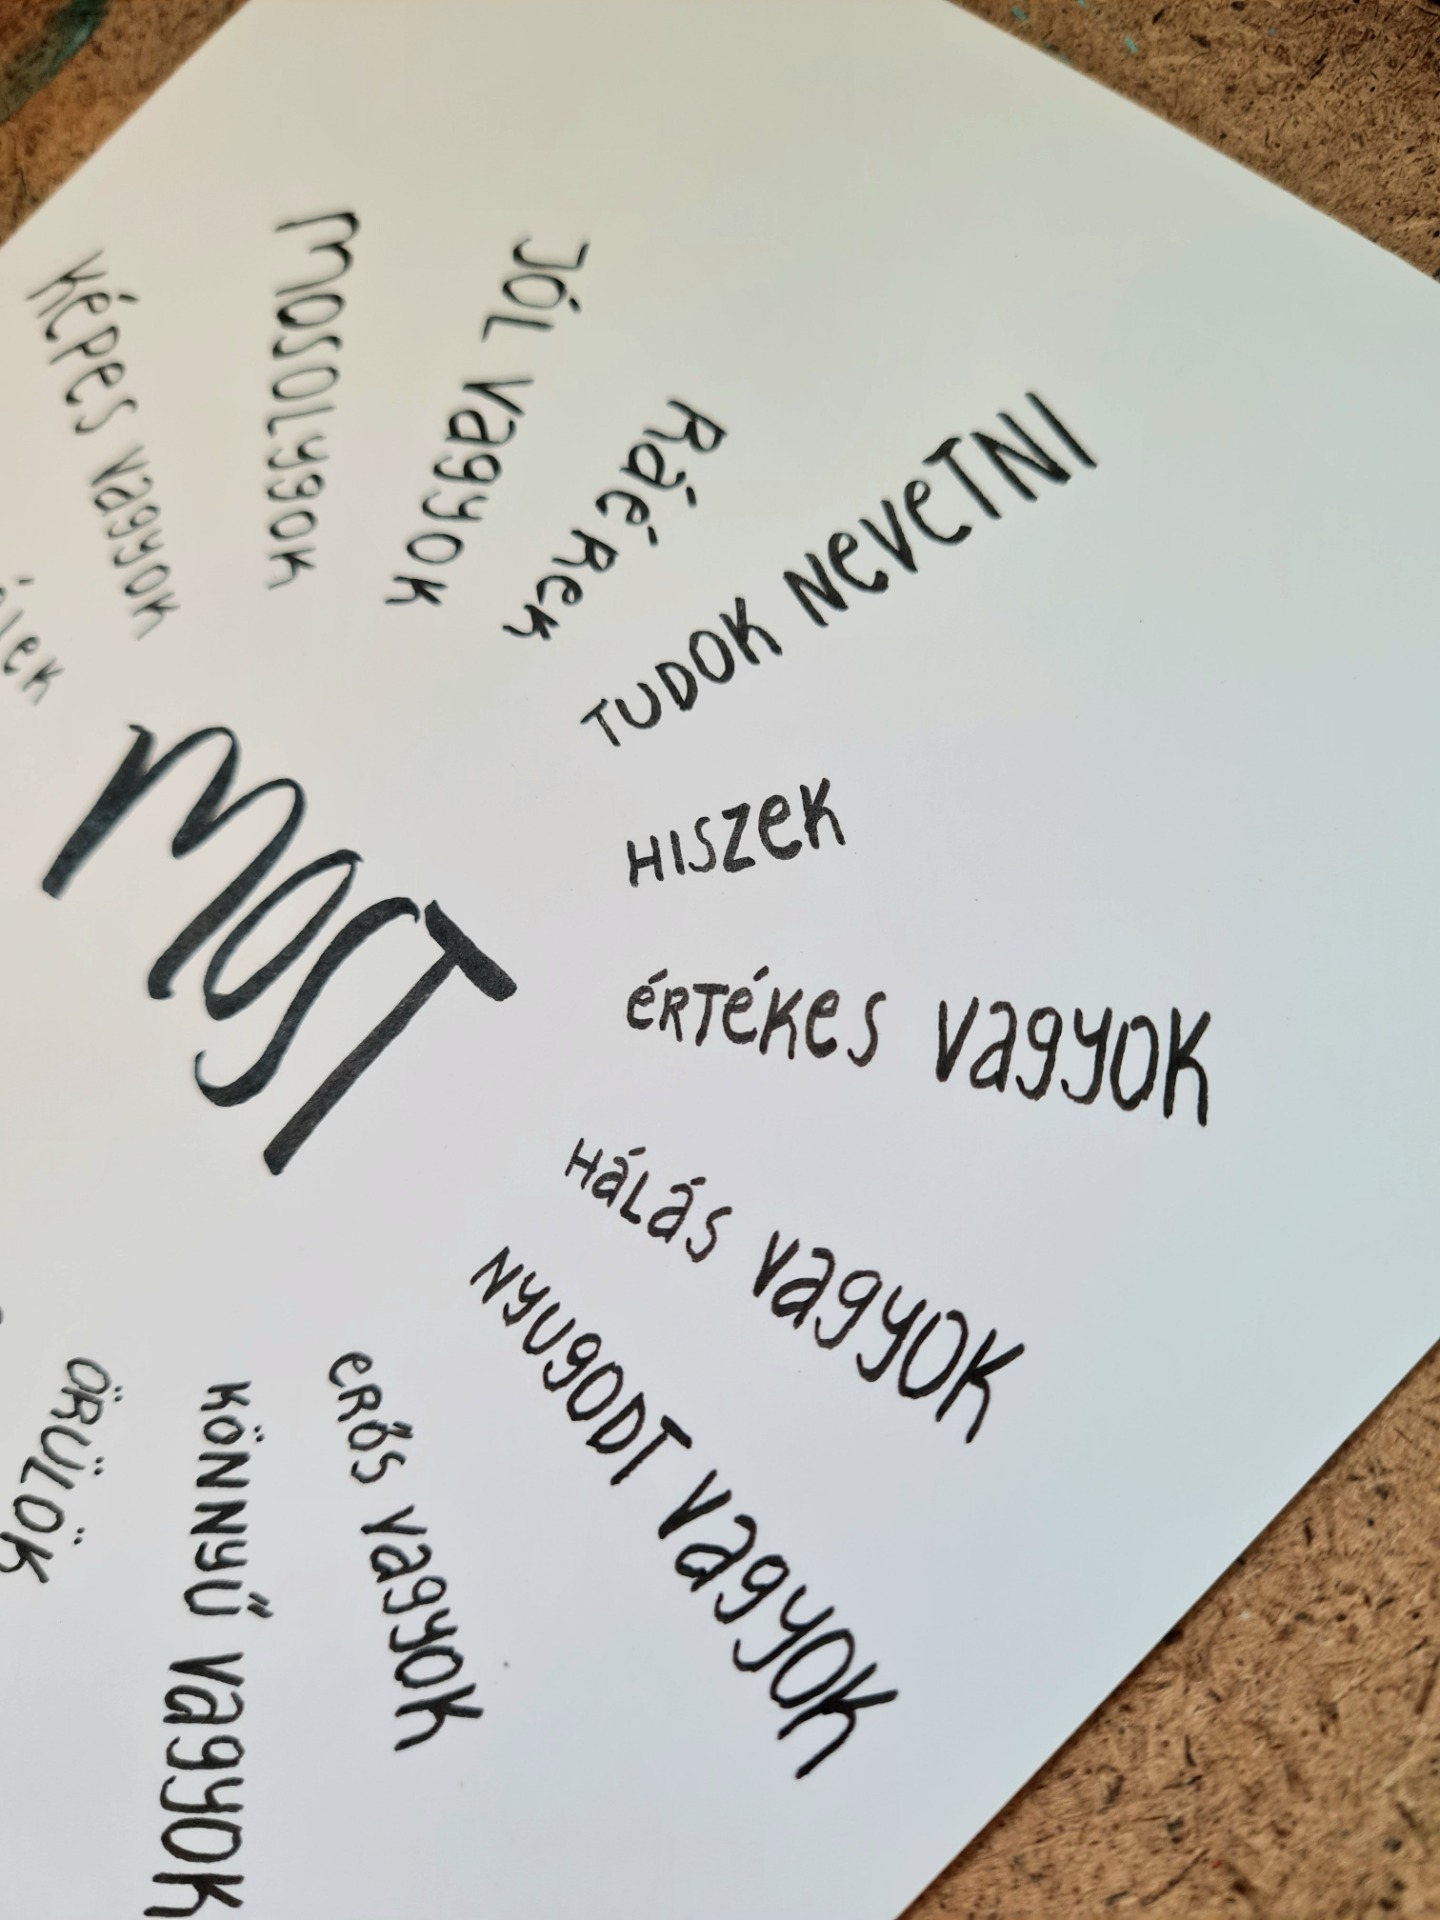 MOST
KÉPES VAGYOK
MOSOLYGOK
JÓL VAGYOK
RÁÉREK
TUDOK NEVETNI
HISZEK
ÉRTÉKES VAGYOK
HÁLÁS VAGYOK
NYUGODT VAGYOK
ERŐS VAGYOK
KÖNNYŰ VAGYOK
ÖRÜLÖK